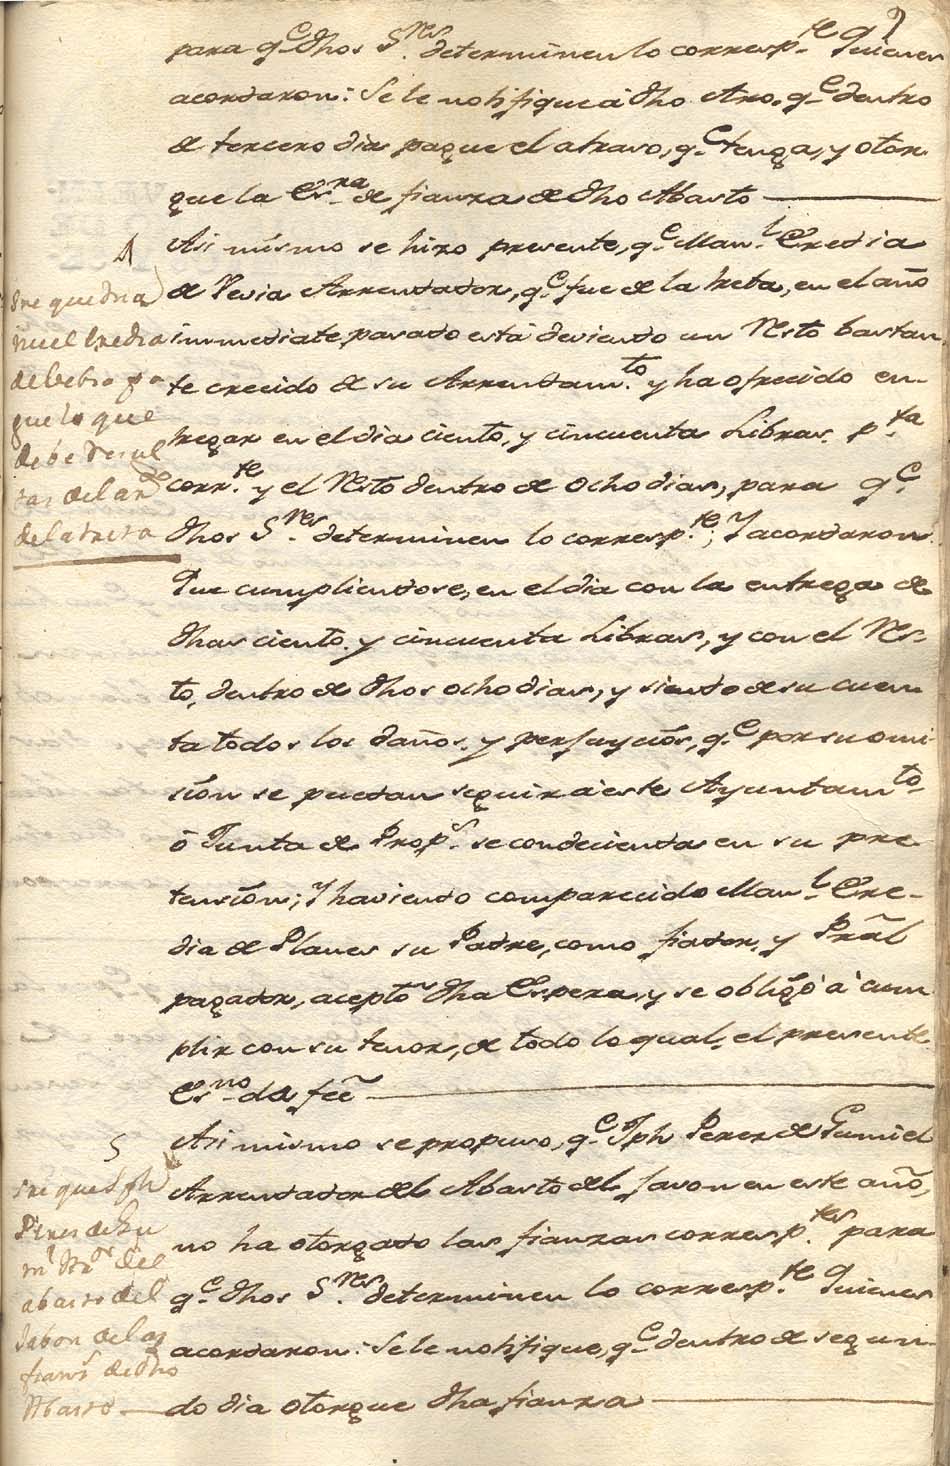 9
para q.e dhos S.res determinen lo corresp.te Quienes
acordaron: Se le notifique â dho Arro. q.e dentro
de tercero dia pague el atraso, q.e tenga, y otor
gue la Es.ra de fianza de dho Abasto
Asi mismo se hizo presente, q.e Man.l Eredia
de Vesia Arrendador, q.e fue de la treta, en el año
immediate pasado està deviendo un Resto bastan
te crecido de su Arrendam.to y ha ofrecido en-
tregar en el dia ciento, y cincuenta Libras, p.ta
corr.te y el Resto dentro de ocho dias, para q.e
dhos S.res determinen lo corresp.te; Y acordaron
Que cumpliendose, en el dia con la entrega de
dhas ciento y cincuenta Libras, y con el Res-
to, dentro de dhos ocho dias, y siendo de su cuen
ta todos los daños, y perjuycios, q.e por su omi-
sion se puedan seguir a este Ayuntam.to
ò Junta de Prop.s se condecienda en su pre-
tension; Y haviendo comparecido Man.l Ere-
dia de Planes su Padre, como fiador, y Prãl
pagador, aceptò dha Espera, y se obligò à cum
plir con su tenor, de todo lo qual, el presente
Es.no da feé
Asi mismo se propuso, q.e Jph Perez de Gumiel
Arrendador del Abasto del Javon en este año,
no ha otorgado las fianzas corresp.tes para
q.e dhos S.res determinen lo corresp.te Quienes
acordaron: Se le notifique, q.e dentro de segun-
do dia otorgue dha fianza
nuel Eredia
pa
gue lo que
debe resul
tas del ar.do
de la treta
S
Perez de Gu
m.l Ar.or del
abasto del
Jabon
fians de dho
Abasto